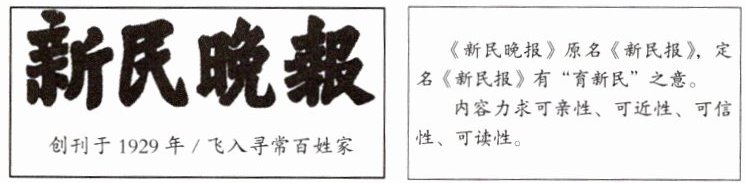 新民晚報
创刊于1929年/飞入寻常百姓家
《新民晚报》原名《新民报》，定
名《新民报》有“育新民”之意。
内容力求可亲性、可近性、可信
性、可读性。